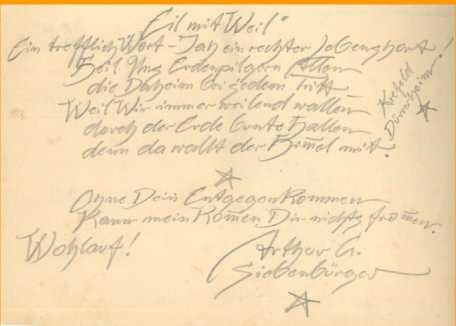 „Eil mit Weil“
Ein trefflich Wort – Jah ein rechter Lebenshort!
Heil Uns Erdenpilgern Allen
die Daheim bei jedem Tritt
Weil Wir immer weilend wallen
durch der Erde bunte Hallen
denn da wallt der Himmel mit.
Krefeld
Ohne Dein Entgegenkommen
Kann mein Kom̄en Dir nichts from̄en.
Wohlauf!
Arthur G.
Siebenbürger